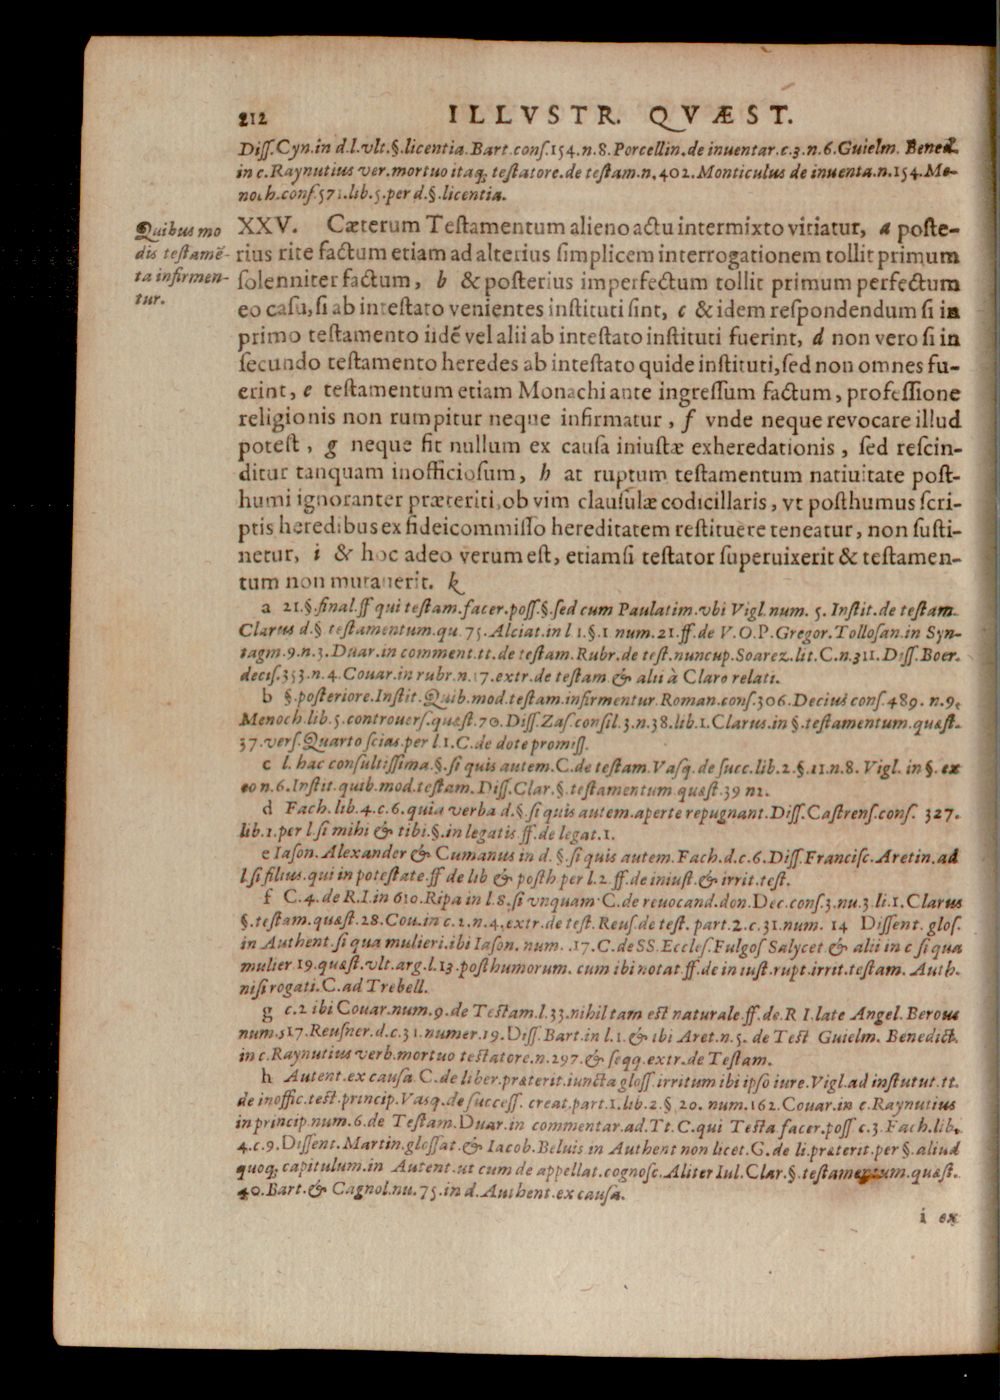 212 ILLVSTR. QVÆST.
Diſſ.Cyn.in d.l.vlt.§.licentia.Bart.conſ.154.n.8.Porcellin.de inuentar.c.3.n.6.Guielm. Bened.
in c.Raynutius ver.mortuo itaq; teſtatore.de teſtam.n.402.Monticulus de inuenta.n.154.Me-
noch.conſ.571.lib.5.per d.§.licentia.
Quibus mo
dis teſtamē-
ta infirmen-
tur.
XXV. Cæterum Teſtamentum alieno actu intermixto vitiatur, a poſte-
rius rite factum etiam ad alterius ſimplicem interrogationem tollit primum
ſolenniter factum, b & poſterius imperfectum tollit primum perfectum
eo caſu, ſi ab inteſtato venientes inſtituti ſint, c & idem reſpondendum ſi in
primo teſtamento iidē vel alii ab inteſtato inſtituti fuerint, d non vero ſi in
ſecundo teſtamento heredes ab inteſtato quide inſtituti, ſed non omnes fu-
erint, e teſtamentum etiam Monachi ante ingreſſum factum, profeſſione
religionis non rumpitur neque infirmatur, f vnde neque revocare illud
poteſt, g neque fit nullum ex cauſa iniuſtæ exheredationis, ſed reſcin-
ditur tanquam inofficioſum, h at ruptum teſtamentum natiuitate poſt-
humi ignoranter præteriti, ob vim clauſulæ codicillaris, vt poſthumus ſcri-
ptis heredibus ex fideicommiſſo hereditatem reſtituere teneatur, non ſuſti-
netur, i & hoc adeo verum eſt, etiamſi teſtator ſuperuixerit & teſtamen-
tum non mutauerit. k
a 21.§.final.ff qui teſtam.facer.poſſ.§.ſed cum Paulatim.vbi Vigl.num. 5. Inſtit.de teſtam.
Clarus d.§ teſtamentum.qu. 75.Alciat.in l 1.§.1 num.21.ff.de V.O.P.Gregor.Tolloſan.in Syn-
tagm.9.n.3.Duar.in comment.tt.de teſtam.Rubr.de teſt.nuncup.Soarez.lit.C.n.311.Diſſ.Boer.
deciſ.353.n.4.Couar.in rubr.n.17.extr.de teſtam & alii à Claro relati.
b §.poſteriore.Inſtit.Quib.mod.teſtam.infirmentur.Roman.conſ.306.Decius conſ.489. n.9.
Menoch.lib.5.controuerſ.quæſt.70.Diſſ.Zaſ.conſil.3.n.38.lib.1.Clarus.in §.teſtamentum.quæſt.
37.verſ.Quarto ſcias.per l.1.C.de dote promiſſ.
c l. hac conſultiſſima.§.ſi quis autem.C.de teſtam.Vaſq.de ſucc.lib.2.§.11.n.8. Vigl. in §. ex
eo n.6.Inſtit.quib.mod.teſtam.Diſſ.Clar.§.teſtamentum.quæſt.39 n1.
d Fach.lib.4.c.6.quia verba d.§.ſi quis autem.aperte repugnant.Diſſ.Caſtrenſ.conſ. 327.
lib.1.per l.ſi mihi & tibi.§.in legatis.ff.de legat.1.
e Iaſon.Alexander & Cumanus in d. §.ſi quis autem.Fach.d.c.6.Diſſ.Franciſc.Aretin.ad
l.ſi filius.qui in poteſtate.ff de lib & poſth per l.2.ff.de iniuſt.& irrit.teſt.
f C.4.de R.I.in 610.Ripa in l.8.ſi vnquam C.de reuocand.don.Dec.conſ.3.nu.3 li.1.Clarus
§.teſtam.quæſt.28.Cou.in c.2.n.4.extr.de teſt.Reuſ.de teſt. part.2.c.31.num. 14 Diſſent. gloſ.
in Authent.ſi qua mulieri.ibi Iaſon. num. .17.C.de SS.Eccleſ.Fulgoſ Salycet & alii in c ſi qua
mulier 19.quæſt.vlt.arg.l.13.poſthumorum. cum ibi notat.ff.de in iuſt.rupt.irrit.teſtam. Auth.
niſi rogati.C.ad Trebell.
g c.2 ibi Couar.num.9.de Teſtam.l.33.nihil tam eſt naturale.ff.de.R I.late Angel.Berous
num.517.Reuſner.d.c.31.numer.19.Diſſ.Bart.in l.1.& ibi Aret.n.5. de Teſt Guielm. Benedict.
in c.Raynutius verb.mortuo teſtatore.n.297.& ſeqq.extr.de Teſtam.
h Autent.ex cauſa C.de liber.præterit.iuncta gloſſ.irritum ibi ipſo iure.Vigl.ad inſtutut.tt.
de inoffic.teſt.princip.Vaſq.de ſucceſſ. creat.part.1.lib.2.§ 20. num.162.Couar.in c.Raynutius
in princip.num.6.de Teſtam.Duar.in commentar.ad.Tt.C.qui Teſta.facer.poſſ c.3.Fach.lib.
4.c.9.Diſſent.Martin.gloſſat.& Iacob.Beluis in Authent non licet.G.de li.præterit.per §.aliud
quoq; capitulum.in Autent.ut cum de appellat.cognoſc.Aliter Iul.Clar.§.teſtamentum.quæſt.
40.Bart.& Cagnol.nu.75.in d.Authent.ex cauſa.
i ex